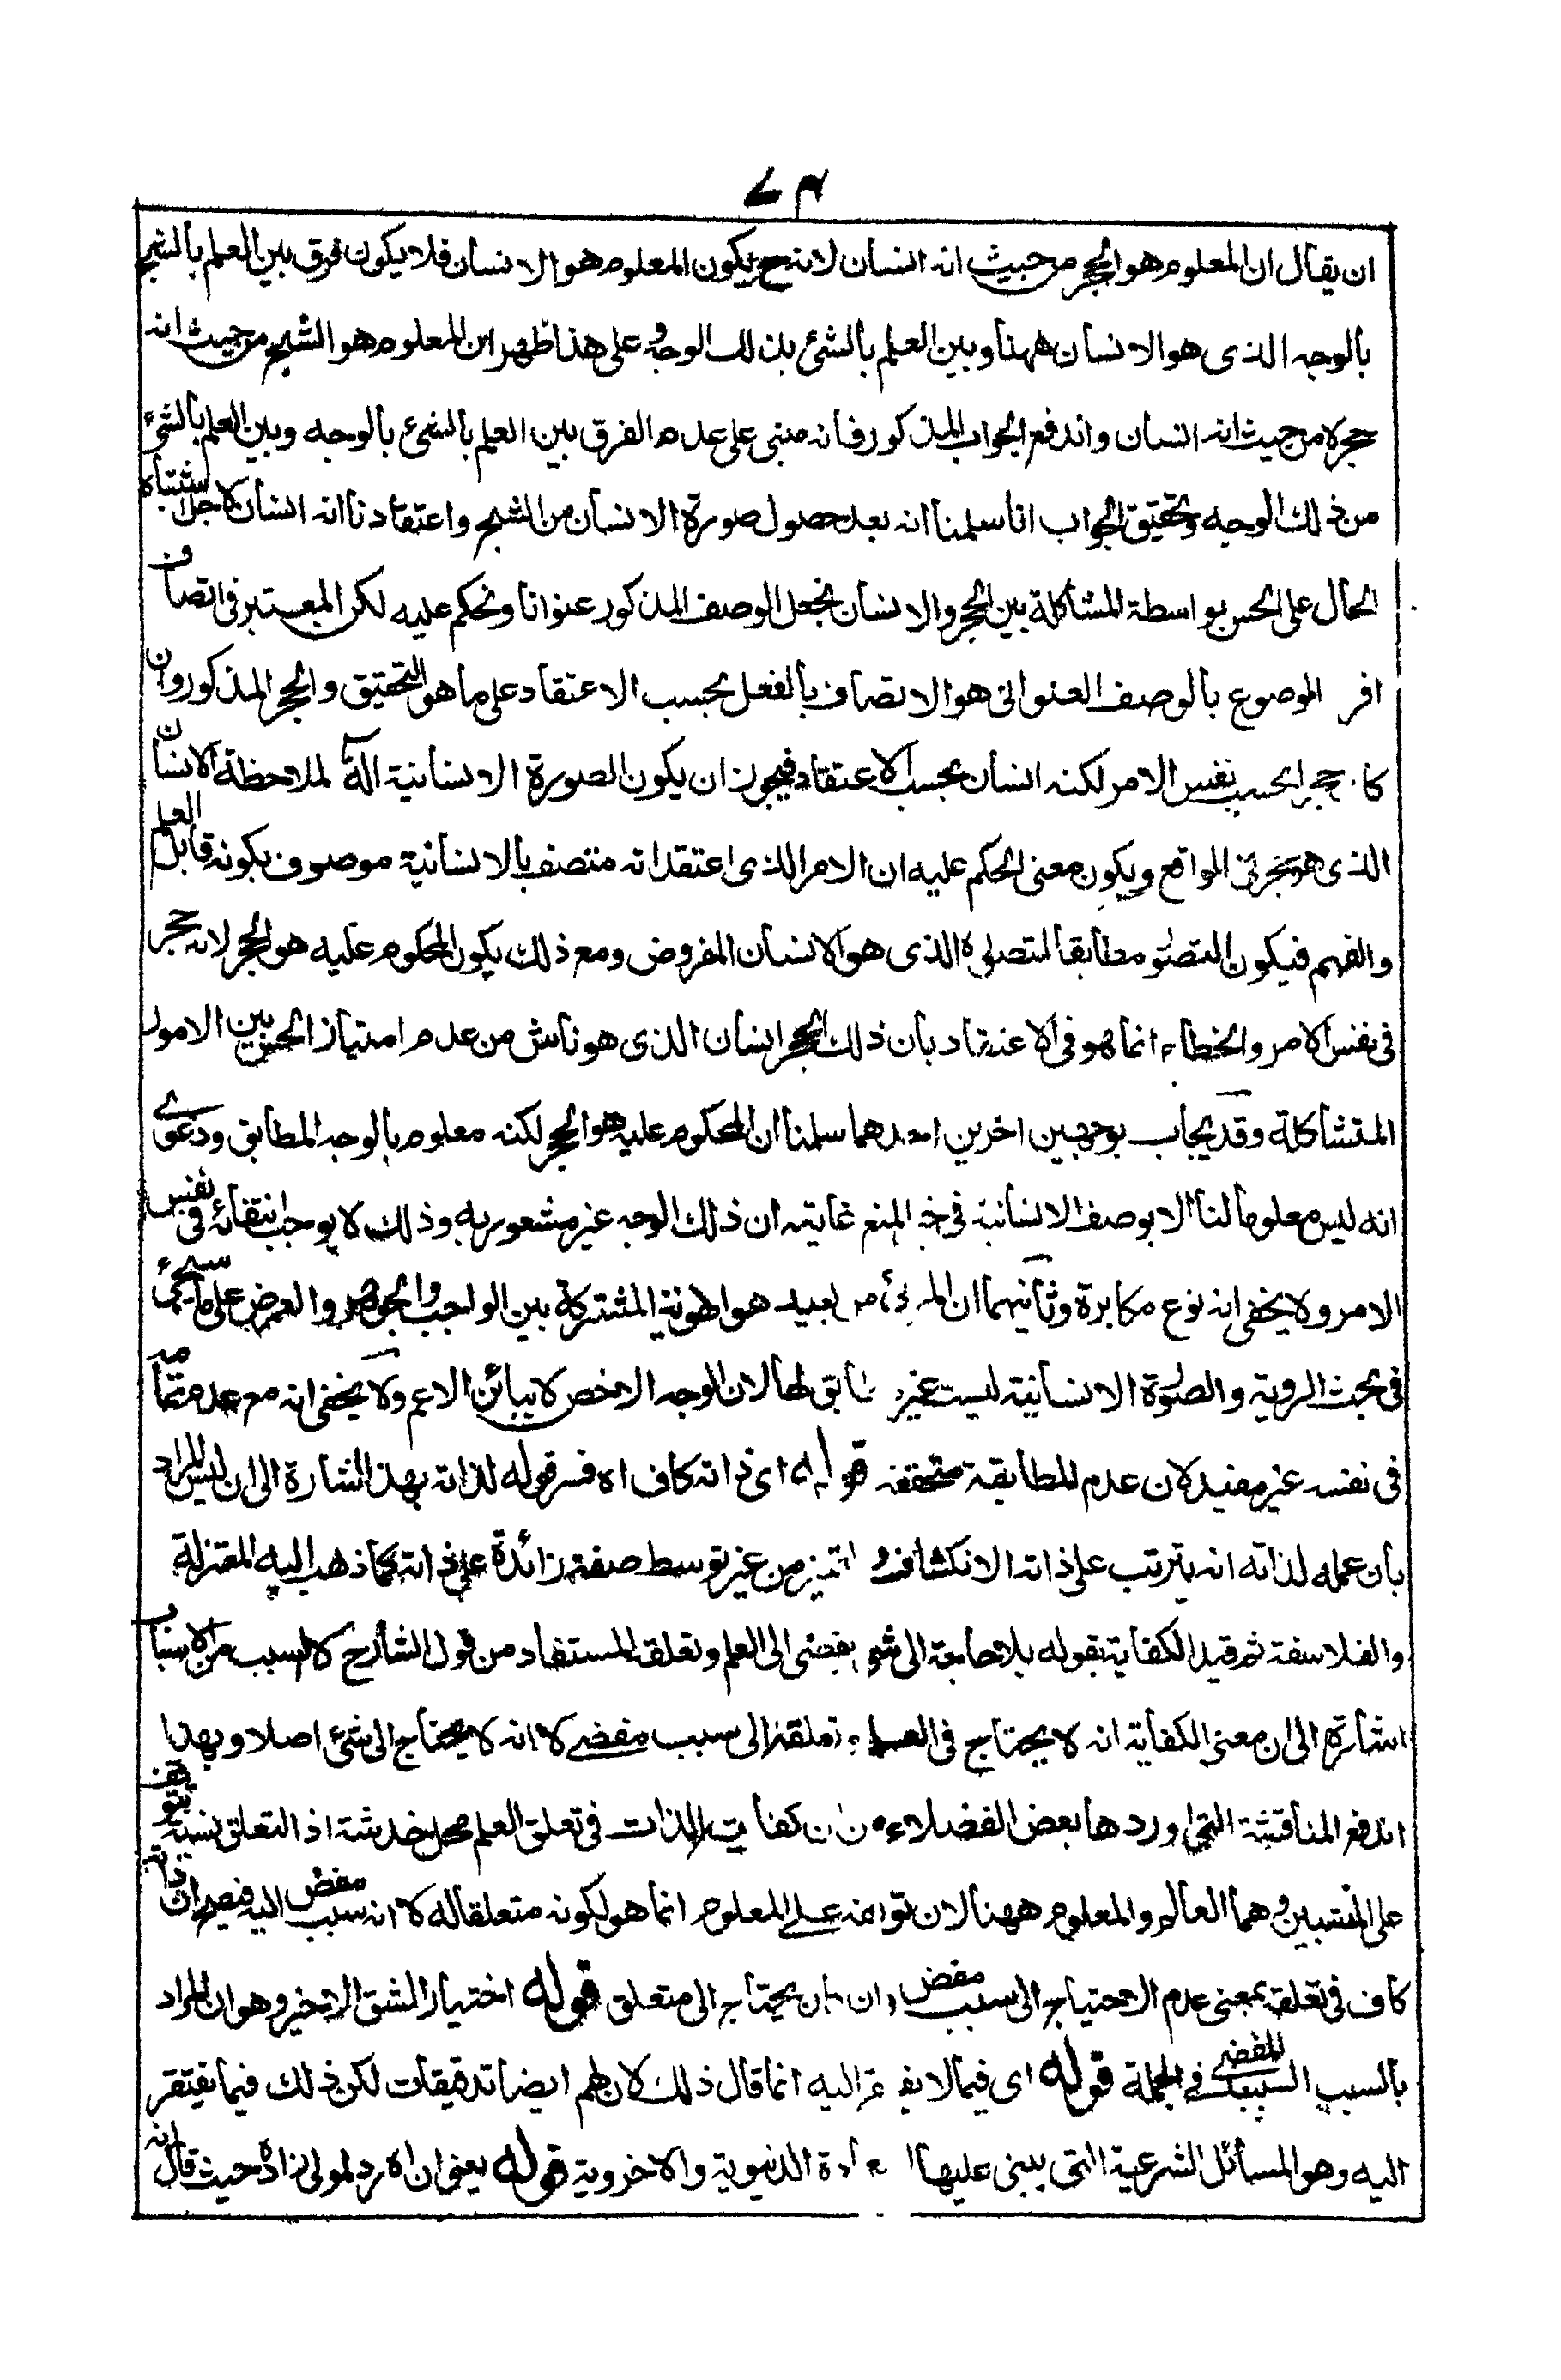 ٧٣
ان يقال ان المعلوم هو الحجر من حيث انه انسان لانه ح يكون المعلوم هو الانسان فلا يكون فرق بين العلم بالشبح
بالوجه الذى هو الانسان ههنا وبين العلم بالشئ بذلك الوجه و على هذا ظهر ان المعلوم هو الشبح من حيث انه
حجر لا من حيث انه انسان واندفع الجواب المذكور فانه مبنى على عدم الفرق بين العلم بالشئ بالوجه وبين العلم بالشئ
من ذلك الوجه وتحقيق الجواب انا سلمنا انه بعد حصول صورة الانسان من الشبح واعتقادنا انه انسان لاجل اشتباه
الحال على الحس بواسطة المشاكلة بين الحجر والانسان نجعل الوصف المذكور عنوانا ونحكم عليه لكن المعتبر فى اتصاف
افر الموضوع بالوصف العنوانى هو الاتصاف بالفعل بحسب الاعتقاد على ما هو التحقيق والحجر المذكور وان
كان حجرا بحسب نفس الامر لكنه انسان بحسب الاعتقاد فيجوز ان يكون الصورة الانسانية آلة لملاحظة الانسان
الذى هو حجر فى الواقع ويكون معنى الحكم عليه ان الامر الذى اعتقد انه متصف بالانسانية موصوف بكونه قابل العلم
والفهم فيكون التصور مطابقا لمتصوره الذى هو الانسان المفروض ومع ذلك يكون المحكوم عليه هو الحجر لانه حجر
فى نفس الامر والخطاء انما هو فى الاعتقاد بان ذلك الحجر انسان الذى هو ناش من عدم امتياز الحس بين الامور
المتشاكلة وقد يجاب بوجهين اخرين احدهما سلمنا ان المحكوم عليه هو الحجر لكنه معلوم بالوجه المطابق ودعوى
انه ليس معلوما لنا الا بوصف الانسانية فى حيز المنع غايته ان ذلك الوجه غير مشعور به وذلك لا يوجب انتفائه فى نفس
الامر ولا يخفى انه نوع مكابرة وثانيهما ان المرئى من بعيد هو الهوية المشتركة بين الواجب والجوهر والعرض على ما سيجئ
فى بحث الروية والصورة الانسانية ليست غير مطابق لها لان الوجه الاخص لا يباين الاعم ولا يخفى انه مع عدم تمامه
فى نفسه غير مفيد لان عدم المطابقة متحققة قوله اى ذاته كاف اه فسر قوله لذاته بهذا اشارة الى ان ليس المراد
بان علمه لذاته انه يترتب على ذاته الانكشاف و التميز من غير توسط صفة زائدة على ذاته كما ذهب اليه المعتزلة
والفلاسفة ثم قيد الكفاية بقوله بلا حاجة الى شئ يفضى الى العلم وتعلقه المستفاد من قول الشارح لا لسبب من الاسباب
اشارة الى ان معنى الكفاية انه لا يحتاج فى العلم و تعلقه الى سبب مفضى لا انه لا يحتاج الى شئ اصلا وبهذا
اندفع المناقشة التى اوردها بعض الفضلاء من ان كفاية الذات فى تعلق العلم محل خدشة اذ التعلق نسبة يتوقف
على المنتسبين وهما العالم والمعلوم ههنا لان توقفه على المعلوم انما هو لكونه متعلقا له لا انه سبب مفض اليه فيصح ان ذاته
كاف فى تعلقه بمعنى عدم الاحتياج الى سبب مفض وان كان يحتاج الى متعلق قوله اختيار الشق الاخير وهو ان المراد
بالسبب السبب المفضى فى الجملة قوله اى فيما لا يفتقر اليه انما قال ذلك لان لهم ايضا تدقيقات لكن ذلك فيما يفتقر
اليه وهو المسائل الشرعية التى يبنى عليها السعادة الدنيوية والاخروية قوله يعنى ان اه رد لمولى زاده حيث قال انه